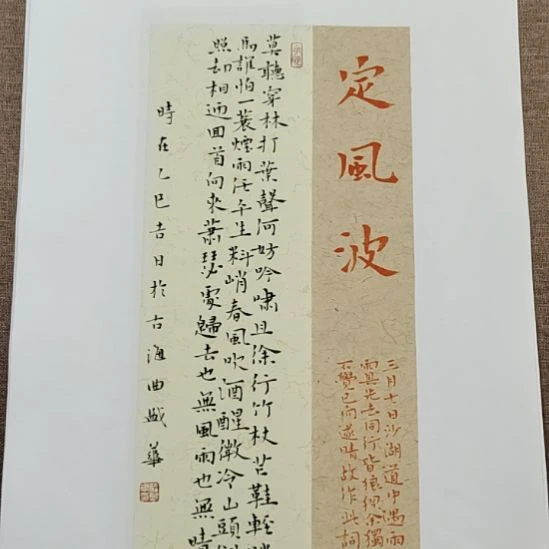 定風波
三月七日沙湖道中遇雨
雨具先去同行皆狼狽余獨
不覺已而遂晴故作此詞
莫聽穿林打葉聲何妨吟嘯且徐行竹杖芒鞋輕
馬誰怕一蓑煙雨任平生料峭春風吹酒醒微冷山頭
照却相迎回首向來蕭瑟處歸去也無風雨也無晴
時在乙巳吉日於古海曲盛華